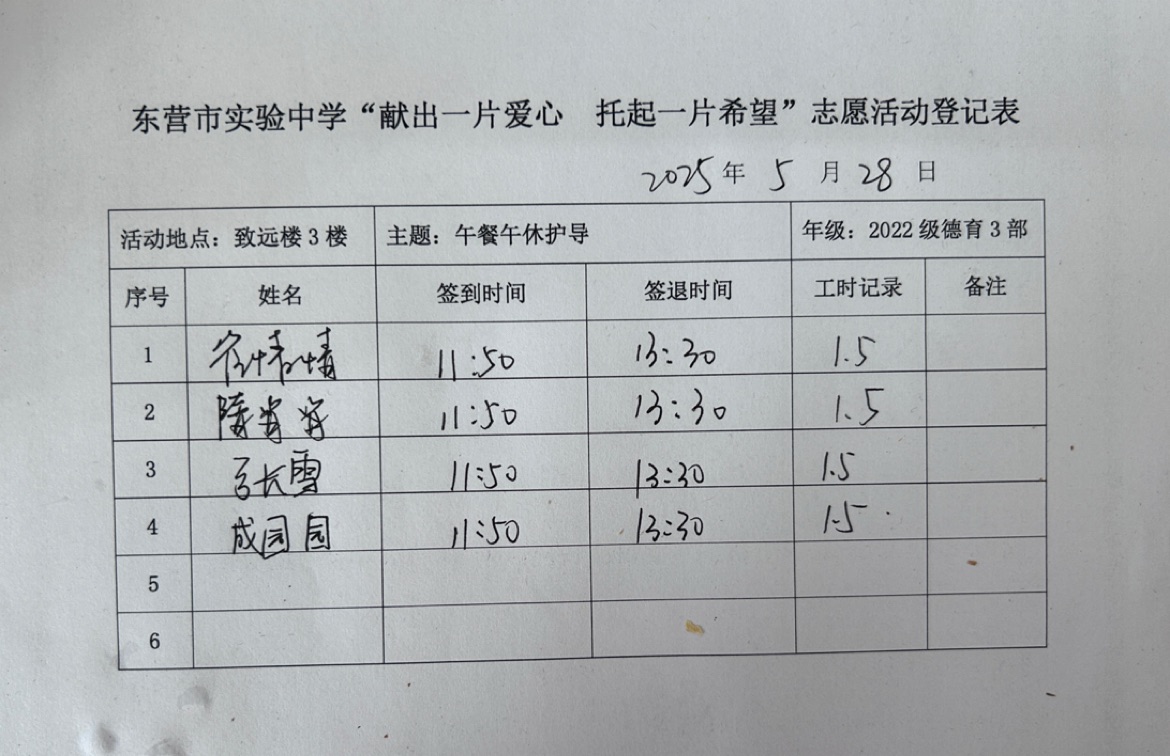 东营市实验中学“献出一片爱心 托起一片希望”志愿活动登记表
2025年 5 月 28 日
活动地点：致远楼3楼 主题：午餐午休护导 年级：2022级德育3部
序号 姓名 签到时间 签退时间 工时记录 备注
1 11:50 13:30 1.5
2 11:50 13:30 1.5
3 张雪 11:50 13:30 1.5
4 成园园 11:50 13:30 1.5
5
6